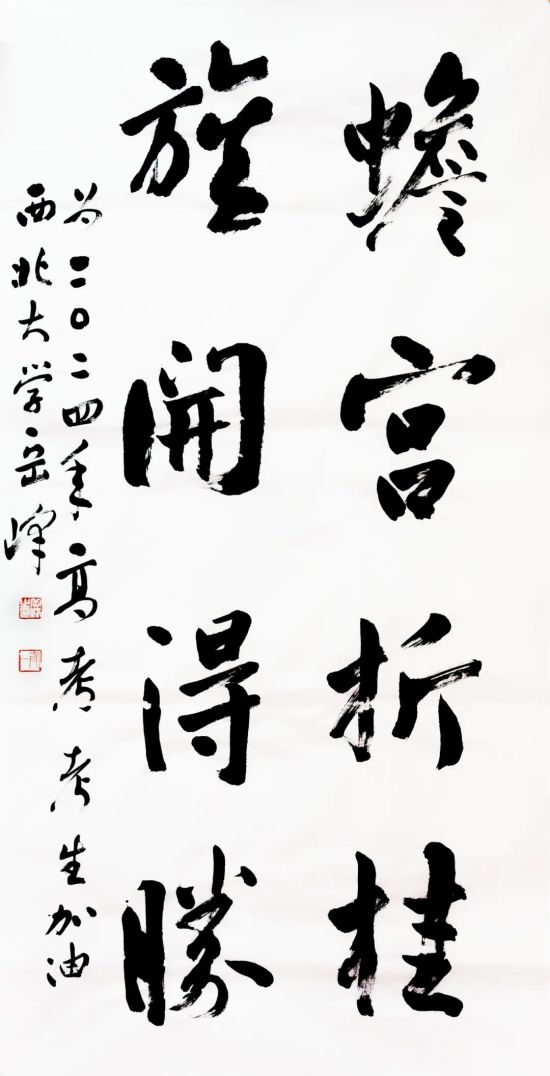 蟾宫折桂
旌開得勝
为二〇二四年高考考生加油
西北大学岳峰